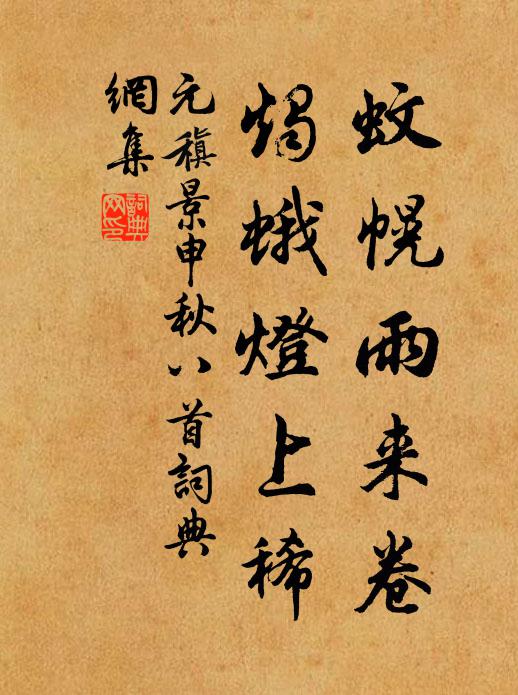 蚊幌雨来卷
烛蛾燈上稀
元稹景申秋八首詞典
網集
詞典
网印